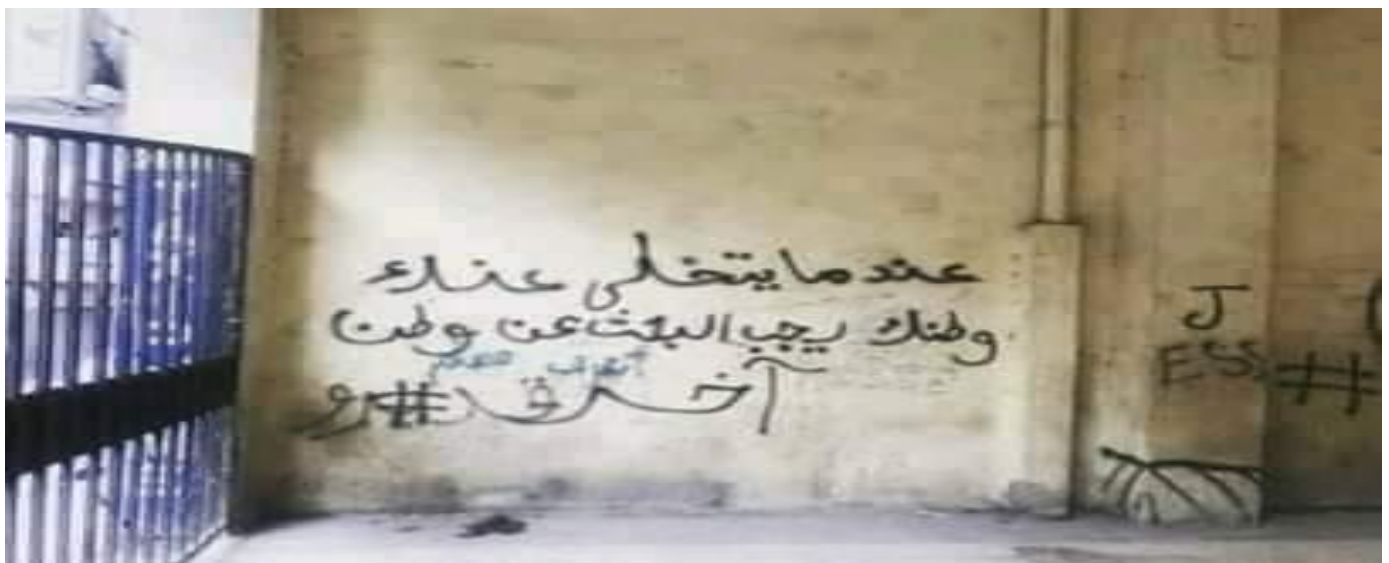 عندما يتخلى عنك
وطنك يجب البحث عن وطن
آخر
J
ESS
#